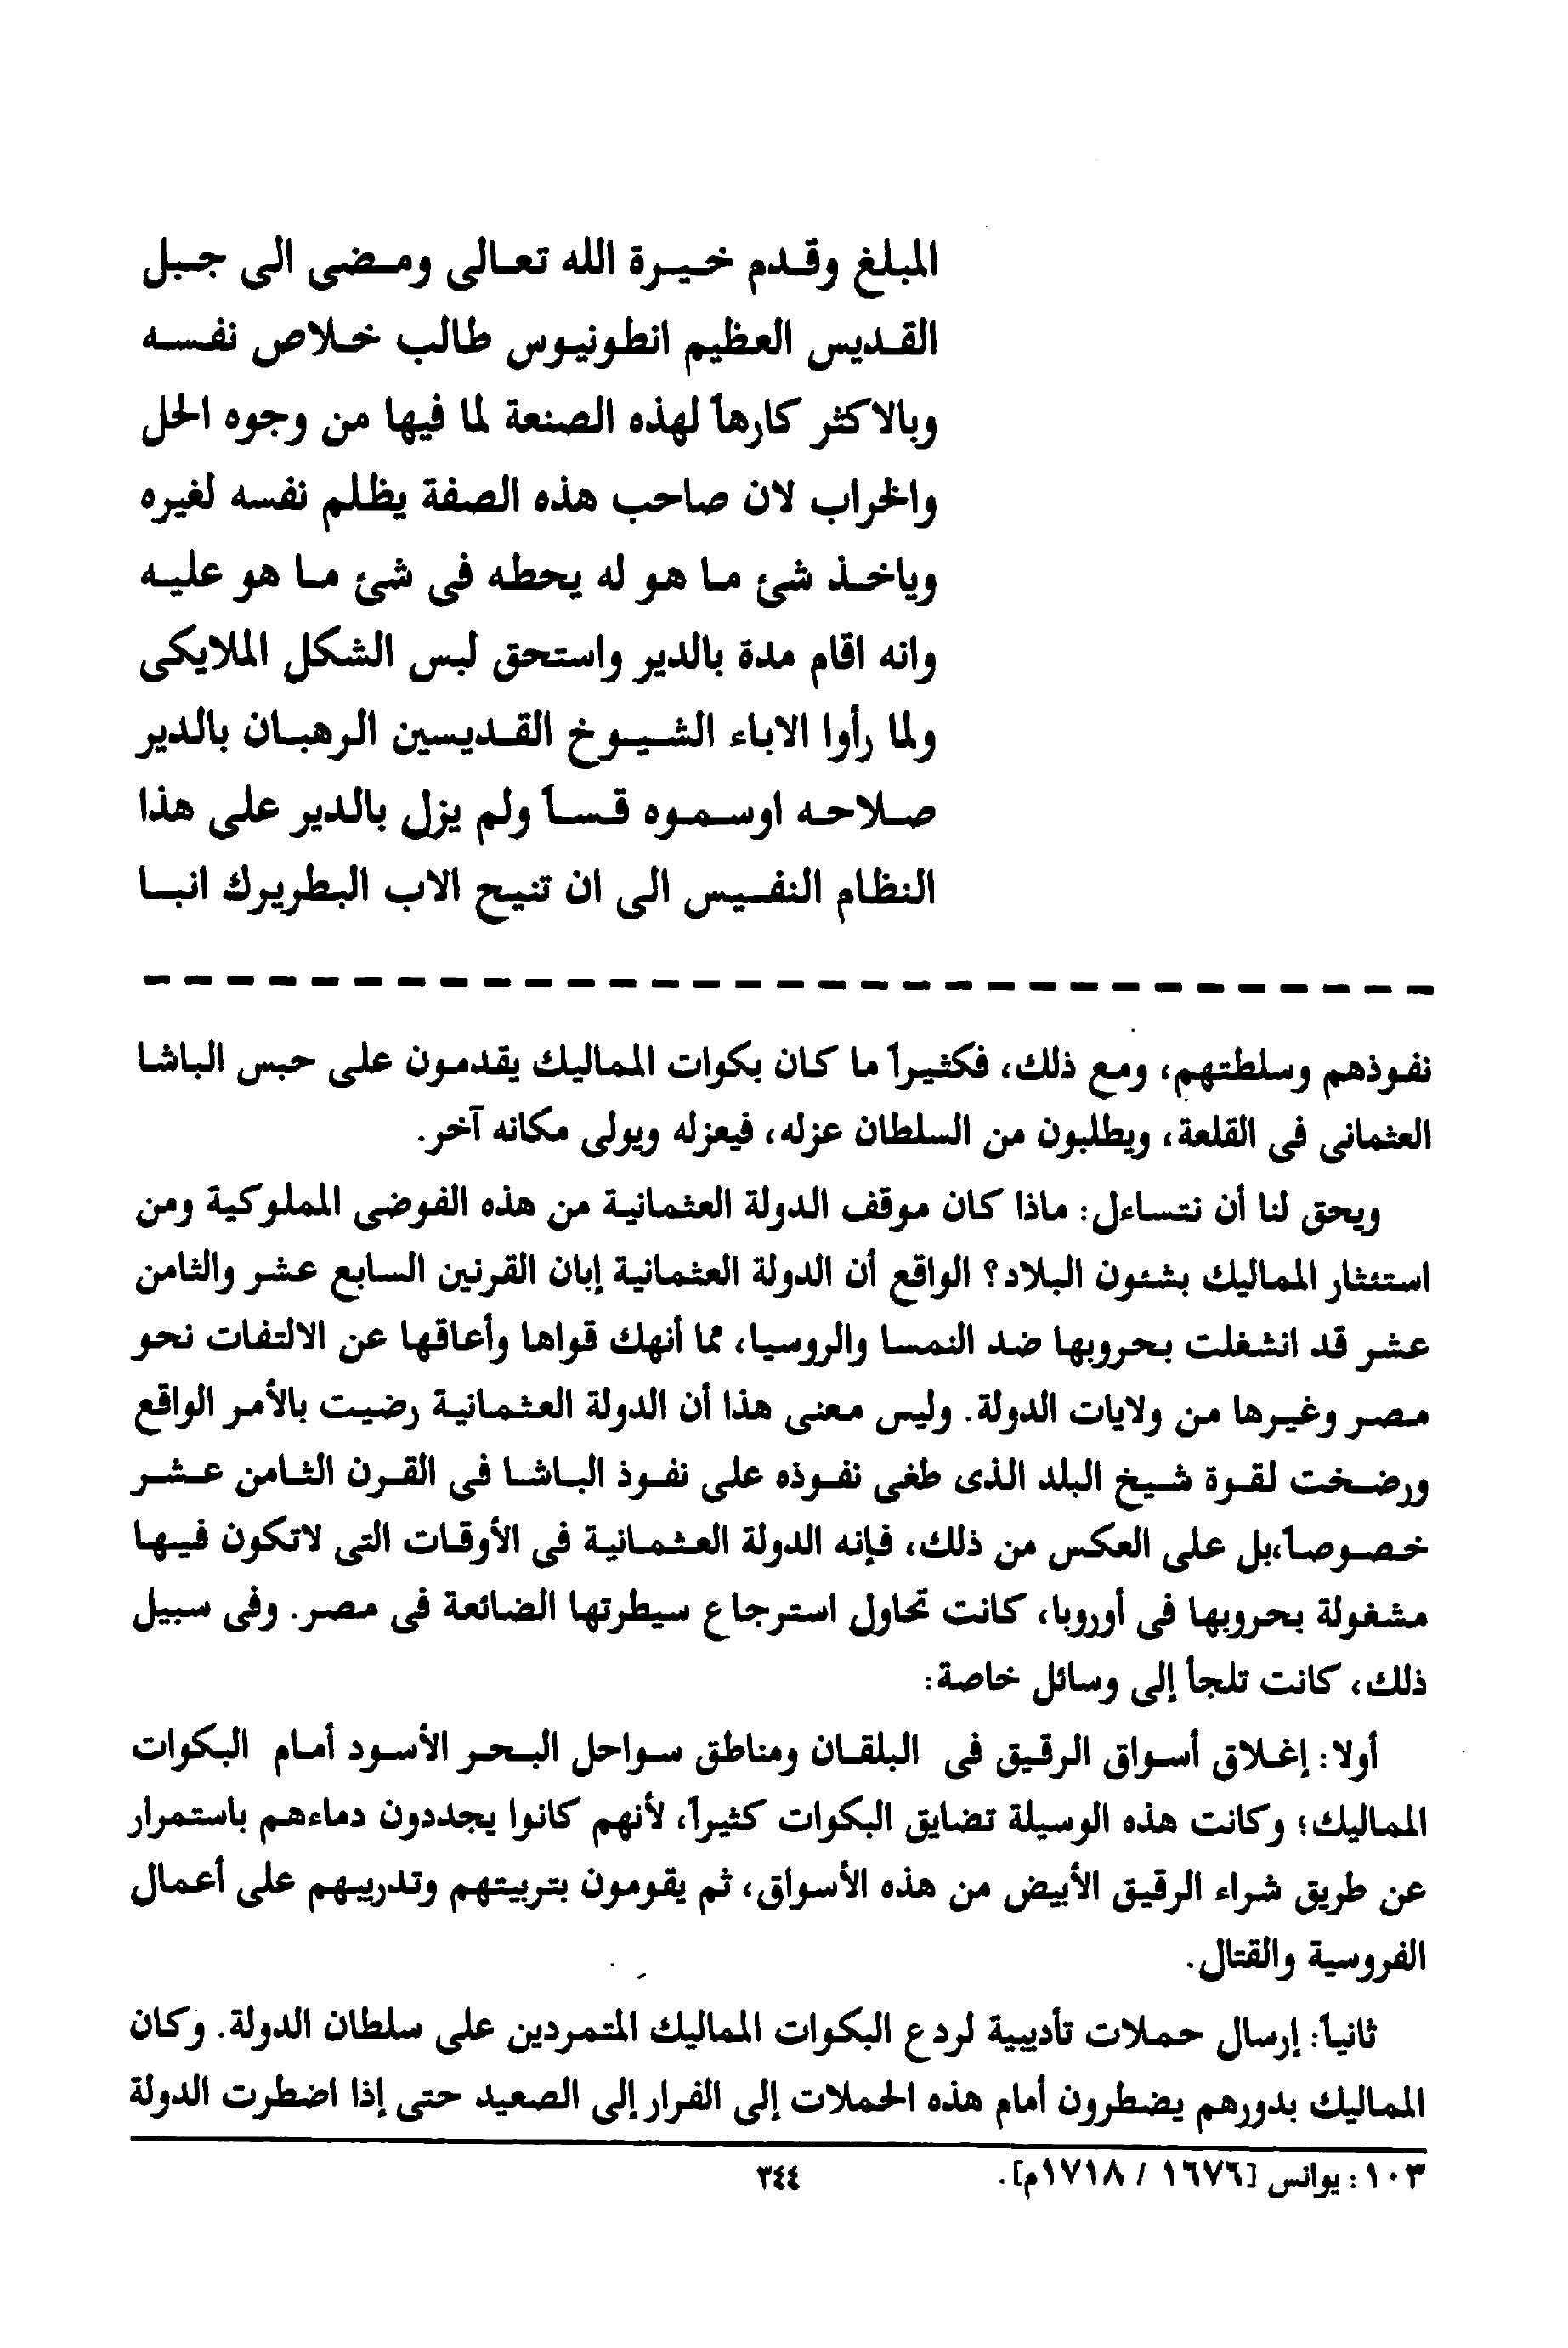 المبلغ وقدم خيرة الله تعالى ومضى الى جبل
القديس العظيم انطونيوس طالب خلاص نفسه
وبالاكثر كارهاً لهذه الصنعة لما فيها من وجوه الحل
والخراب لان صاحب هذه الصفة يظلم نفسه لغيره
وياخذ شئ ما هو له يحطه فى شئ ما هو عليه
وانه اقام مدة بالدير واستحق لبس الشكل الملايكى
ولما رأوا الاباء الشيوخ القديسين الرهبان بالدير
صلاحه اوسموه قساً ولم يزل بالدير على هذا
النظام النفيس الى ان تنيح الاب البطريرك انبا
نفوذهم وسلطتهم، ومع ذلك، فكثيراً ما كان بكوات المماليك يقدمون على حبس الباشا
العثمانى فى القلعة، ويطلبون من السلطان عزله، فيعزله ويولى مكانه آخر.
ويحق لنا أن نتساءل: ماذا كان موقف الدولة العثمانية من هذه الفوضى المملوكية ومن
استئثار المماليك بشئون البلاد؟ الواقع أن الدولة العثمانية إبان القرنين السابع عشر والثامن
عشر قد انشغلت بحروبها ضد النمسا والروسيا، مما أنهك قواها وأعاقها عن الالتفات نحو
مصر وغيرها من ولايات الدولة. وليس معنى هذا أن الدولة العثمانية رضيت بالأمر الواقع
ورضخت لقوة شيخ البلد الذى طغى نفوذه على نفوذ الباشا فى القرن الثامن عشر
خصوصاً،بل على العكس من ذلك، فإنه الدولة العثمانية فى الأوقات التى لاتكون فيها
مشغولة بحروبها فى أوروبا، كانت تحاول استرجاع سيطرتها الضائعة فى مصر. وفى سبيل
ذلك، كانت تلجأ إلى وسائل خاصة:
أولا: إغلاق أسواق الرقيق فى البلقان ومناطق سواحل البحر الأسود أمام البكوات
المماليك؛ وكانت هذه الوسيلة تضايق البكوات كثيراً، لأنهم كانوا يجددون دماءهم باستمرار
عن طريق شراء الرقيق الأبيض من هذه الأسواق، ثم يقومون بتربيتهم وتدريبهم على أعمال
الفروسية والقتال.
ثانياً: إرسال حملات تأديبية لردع البكوات المماليك المتمردين على سلطان الدولة. وكان
المماليك بدورهم يضطرون أمام هذه الحملات إلى الفرار إلى الصعيد حتى إذا اضطرت الدولة
١٠٣: يوانس [١٦٧٦ / ١٧١٨م]. ٣٤٤